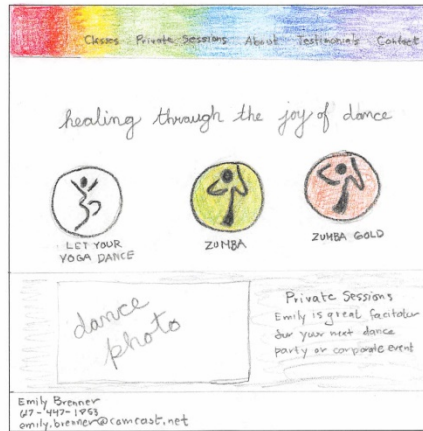 Classes Private Sessions About Testimonials Contact
healing through the joy of dance
LET YOUR
YOGA DANCE
ZUMBA
ZUMBA GOLD
dance
photo
Private Sessions
Emily is great facitator
for your next dance
party or corporate event
Emily Brenner
617-447-1853
emily.brenner@comcast.net